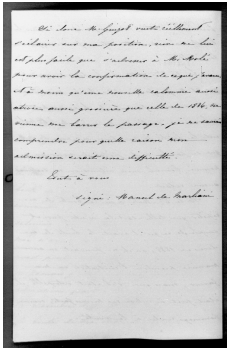 Si donc Mr Guizot veut réellement
s'éclairer sur ma position, rien ne lui
est plus facile que s'adresser à Mr Molé
pour avoir la confirmation de ce que j'avance
Et à moins qu'une nouvelle calomnie aussi
atroce aussi grossière que celle de 1836, ne
vienne me barrer le passage, je ne saurais
comprendre pour quelle raison mon
admission serait une difficulté.
Tout à vous
signé: Manuel de Marliani